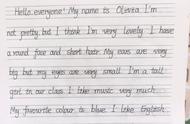 Hello, everyone! My name is Olevia I'm
not pretty, but I think I'm very lovely I have
a round face and short hair. My ears are very
big but my eyes are very small I'm a tall
girl in our class I like music very much
My favourite colour is blue. I like English